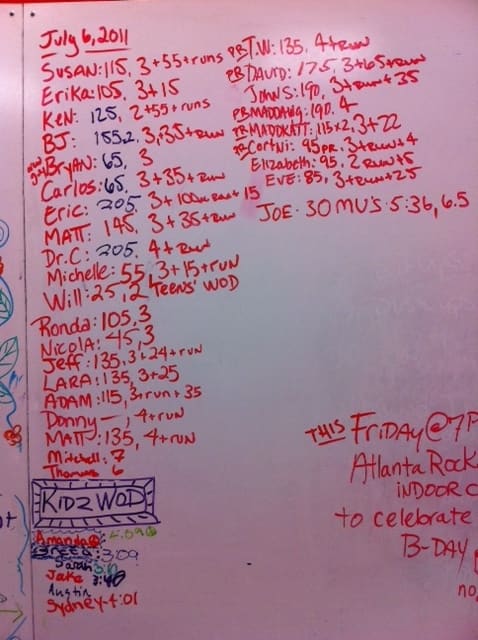 July 6, 2011
Susan: 115, 3+55+runs
Erika: 105, 3+15
Ken: 125, 2+55+runs
BJ: 155x2, 3,35+run
Bryan: 65, 3
Carlos: 65, 3+35+run
Eric: 205, 3+100m run+15
Matt: 145, 3+35+run
Dr. C: 205, 4+run
Michelle: 55, 3+15+run
Will: 25, 2 Teens' WOD
Ronda: 105, 3
Nicola: 45, 3
Jeff: 135, 3+24+run
Lara: 135, 3+25
Adam: 115, 3+run+35
Donny —, 4+run
Matt: 135, 4+run
Mitchell: 7
Thomas 6
KIDZ WOD
Amanda 4:59
3:09
Sarah
Jake 3:40
Austin
Sydney-4:01
PB T.W: 135, 4+run
PB David: 175, 3+65+run
John S: 190, 3+run+35
PB MADDAWG: 190, 4
PB MADDKATT: 115x2, 3+22
PB Cortni: 95 PR, 3+run+4
Elizabeth: 95, 2 run+5
Eve: 85, 3+run+25
Joe: 30 MU's 5:36, 6.5
THIS Friday @ 7P
Atlanta Rock
INDOOR C
to celebrate
B-DAY
no